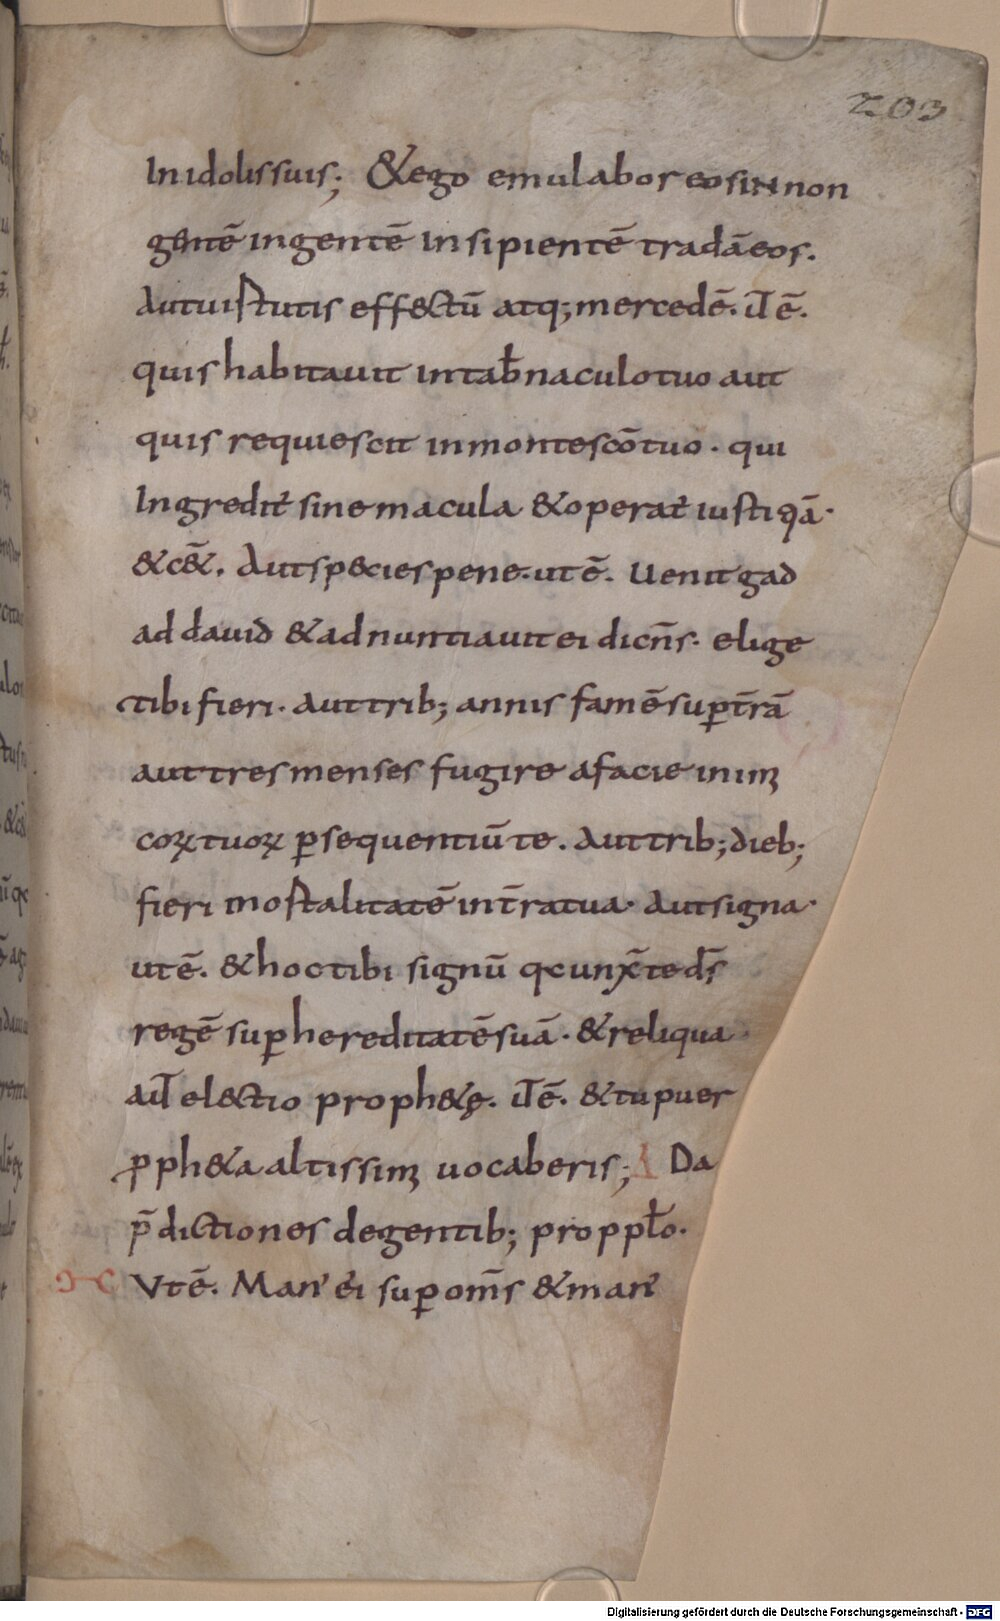 203
In idolis suis; & ego emulabor eos in non
gentē in gentē insipientē tradā eos.
Aut uirtutis effectū atq; mercedē. ut̄ ē.
quis habitauit in tab̄naculo tuo aut
quis requiescit in monte scō tuo · qui
Ingredit̄ sine macula & operat̄ iustiꝗā·
& cēt. Aut species pene. ut ē. Uenit gad
ad dauid & adnuntiauit ei dicn̄s. elige
tibi fieri. aut trib; annis famē suꝑ t̄rā
aut tres menses fugire a facie inim
coꝝ tuoꝝ ꝑsequentiū te. Aut trib; dieb;
fieri mortalitatē in t̄ra tua. Aut signa·
ut ē. & hoc tibi signū qc unx̄ te ds̄
regē suꝑ hereditatē suā. & reliqua
aut̄ electio proph&ę. ut̄ ē. & tu puer
ꝓph&a altissim uocaberis; Da
p̄dictiones de gentib; pro ppl̄o.
Ut ē. Man' ei suꝑ om̄s & man'
Digitalisierung gefördert durch die Deutsche Forschungsgemeinschaft - DFG